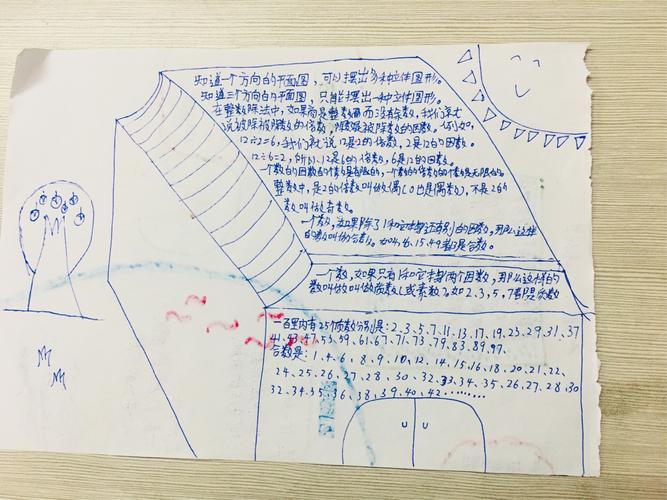 知道一个方向的平面图，可以摆出多种立体图形。
知道三个方向的平面图，只能摆出一种立体图形。
在整数除法中，如果商是整数而没有余数，我们就
说被除数是除数的倍数，除数是被除数的因数。例如，
12÷2=6，我们就说12是2的倍数，2是12的因数。
12÷6=2，所以12是6的倍数，6是12的因数。
一个数的因数的个数是有限的，一个数的倍数的个数是无限的。
整数中，是2的倍数叫做偶（0也是偶数），不是2的
数叫做奇数。
一个数，如果除了1和它本身还有别的因数，那么这样
的数叫做合数。如4、6、15、49都是合数。
一个数，如果只有1和它本身两个因数，那么这样的
数叫做叫做质数（或素数）。如2、3、5、7都是质数
一百里内有25个质数分别是：2、3、5、7、11、13、17、19、23、29、31、37
41、43、47、53、59、61、67、71、73、79、83、89、97、
合数是：1、4、6、8、9、10、12、14、15、16、18、20、21、22、
24、25、26、27、28、30、32、33、34、35、26、27、28、30
32、34、35、36、38、39、40、42………